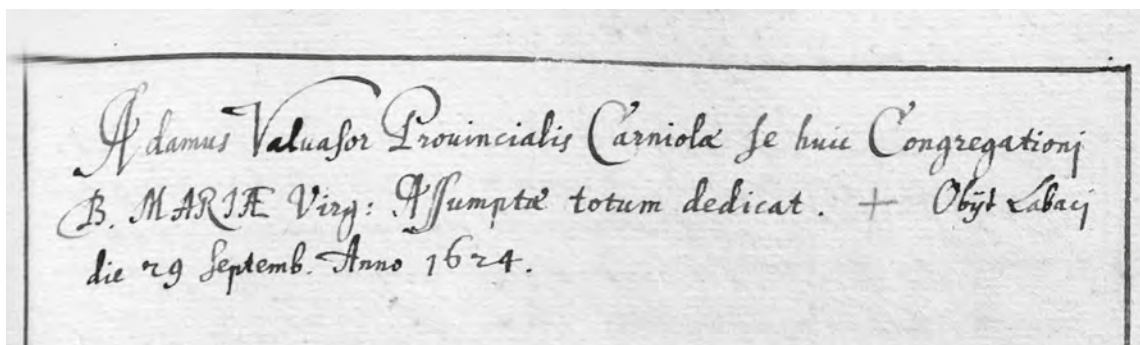 Adamus Valuasor Prouincialis Carniolæ se huic Congregationj
B. MARIÆ Virg: Assumptæ totum dedicat. + Obijt Labacj
die 29 Septemb. Anno 1624.